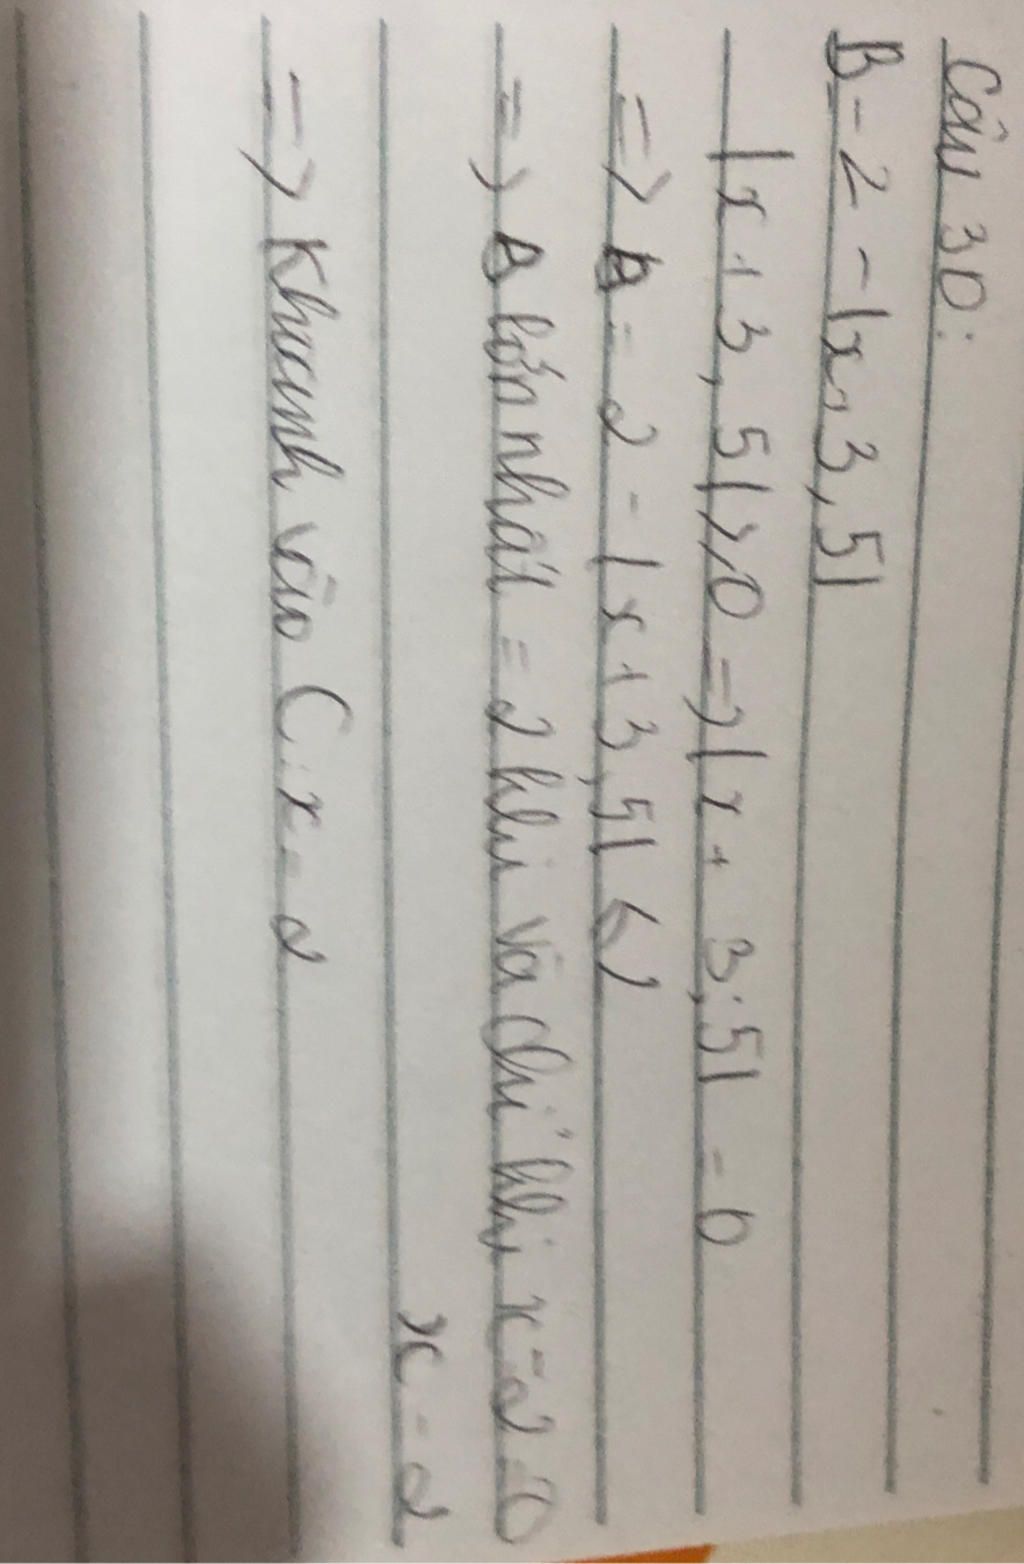 Câu 30:
B = 2 - |x + 3,5|
|x + 3,5| ≥ 0 => |x + 3,5| = 0
=> B = 2 - |x + 3,5| ≤ 2
=> B lớn nhất = 2 khi và chỉ khi x - 2 = 0
x = 2
=> Khoanh vào C. x = 2